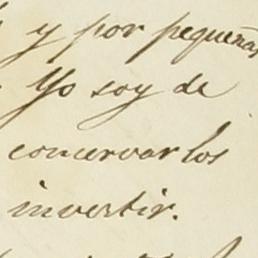 y por pequeñas
Yo soy de
concervarlos
invertir.